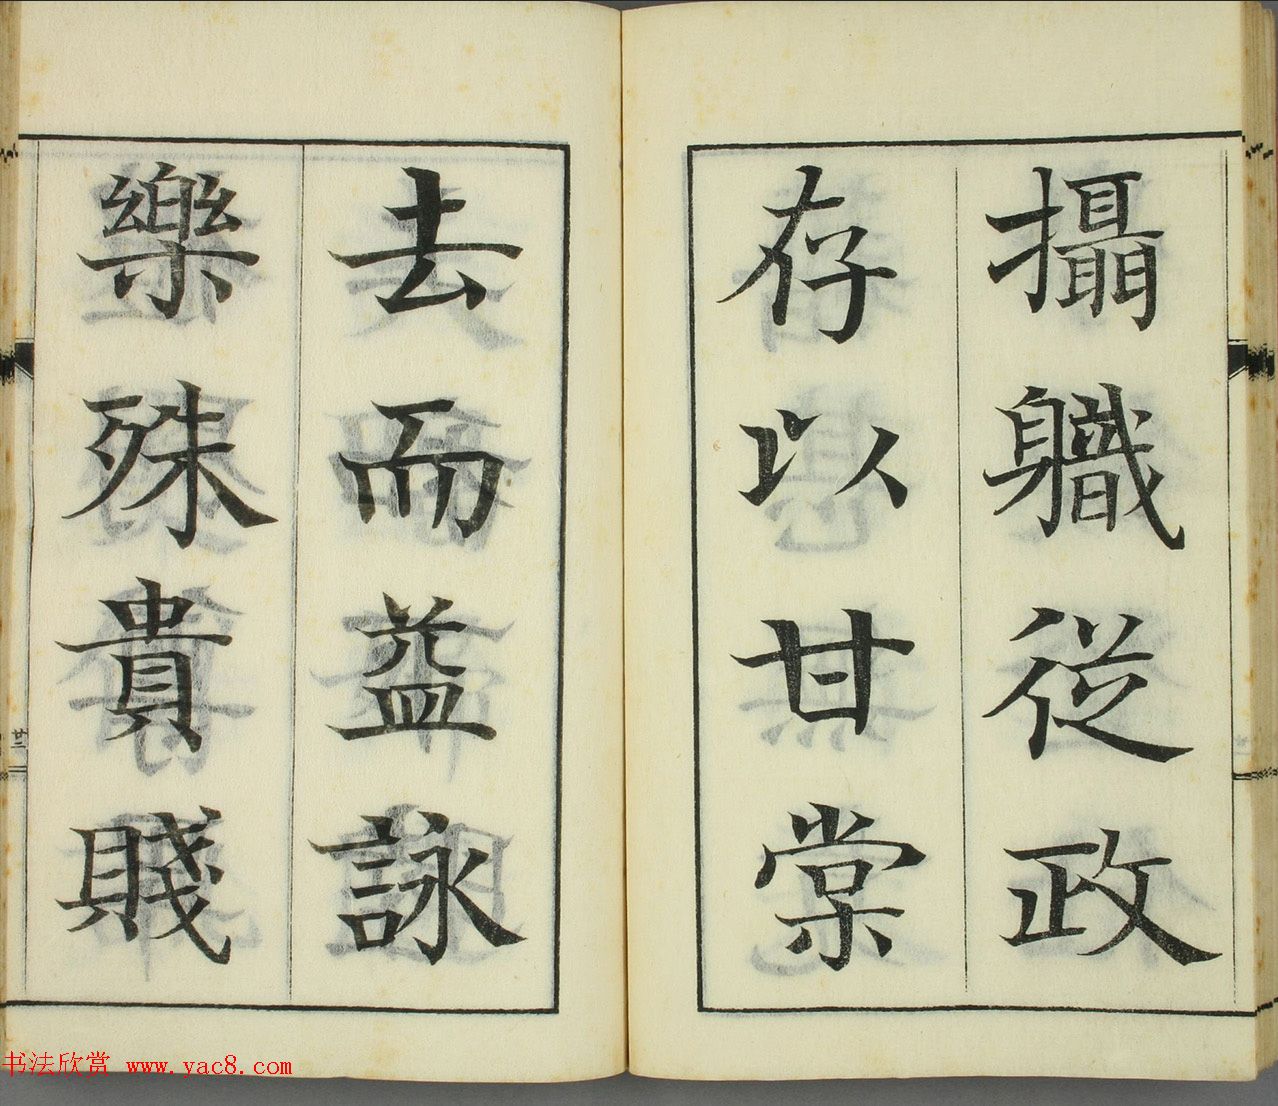 攝軄從政
存以甘棠
去而益詠
樂殊貴賤
廿三
书法欣赏 www.yac8.com